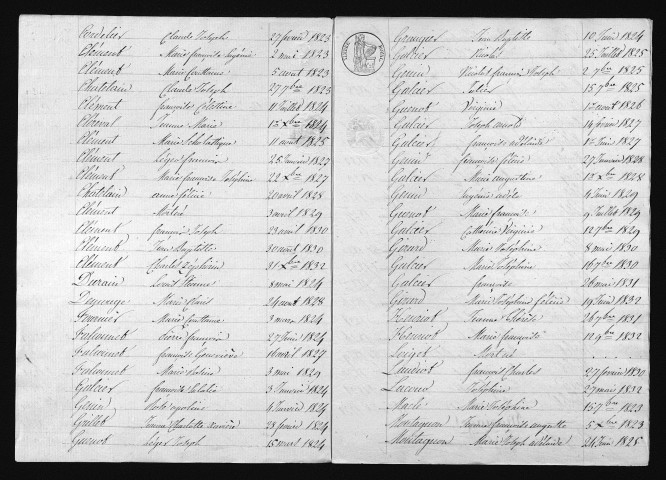 Cordelier Claude Joseph 27 février 1823
Clément Marie françoise Eugénie 2 mai 1823
Clément Marie Constance 5 aout 1823
Chatelain Claude Joseph 27 7bre 1823
Clément françoise Célestine 11 Juillet 1824
Jeanne Marie 13 Xbre 1824
Clément Marie Scholastique 11 aout 1825
Clément Léger francois 25 Janvier 1827
Clément Marie françoise Joséphine 22 Xbre 1827
Chatelain anne félicie 20 avril 1828
Clément Mortné 3 avril 1829
Clément françois Joseph 23 avril 1830
Clément Jean Baptiste 30 aout 1830
Clément Charles Zéphirin 31 Xbre 1832
Durain Louis Etienne 8 mai 1824
Marie 24 aout 1828
Marie Constance 3 mars 1824
Falconnet Pierre françois 27 Juin 1824
Falconnet françoise Geneviève 16 avril 1827
Falconnet Marie 3 mai 1829
Galcier françoise 3 Janvier 1824
Genin 4 Janvier 1824
Gillet Jeanne Charlotte Xavière 28 février 1824
Guenot Léger Joseph 15 mars 1824
Granger Jean Baptiste 10 Juin 1824
Galcier Nicolas 25 Juillet 1825
Genin Nicolas françois Joseph 2 7bre 1825
Galcier Julien 15 7bre 1825
Guenot Virginie 17 aout 1826
Galcier Joseph 14 février 1827
Galcier françoise adélaïde 1er Juin 1827
Genin françoise 27 Janvier 1828
Galcier Marie augustine 13 Xbre 1828
Genin Eugénie adèle 4 Juin 1829
Guenot Marie françoise 9 Juillet 1829
Galcier Catherine Virginie 12 7bre 1829
Girard Marie Joséphine 8 mai 1830
Galcier Marie Joséphine 16 7bre 1830
Galcier françoise 26 mai 1831
Girard Marie Joséphine Célénie 19 Juin 1832
Jeanne Thérèse 26 7bre 1831
Marie françoise 12 9bre 1832
Loiget Mortné
françois Charles 27 février 1830
Lacour Joséphine 27 mai 1832
Marie Joséphine 15 7bre 1823
Montagnon Jeanne françoise augustine 5 Xbre 1823
Montagnon Marie Joseph adélaïde 24 Juin 1825